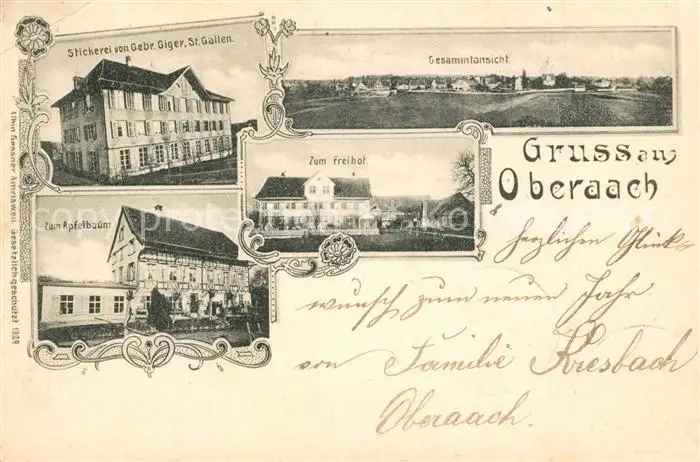 Stickerei von Gebr. Giger, St. Gallen.
Gesammtansicht.
Zum Freihof.
Zum Apfelbaum
Gruss aus
Oberaach
& herzlichen Glück-
wunsch zum neuen Jahr
von Familie Kresbach
Oberaach.
Gesetzlich geschützt 1329